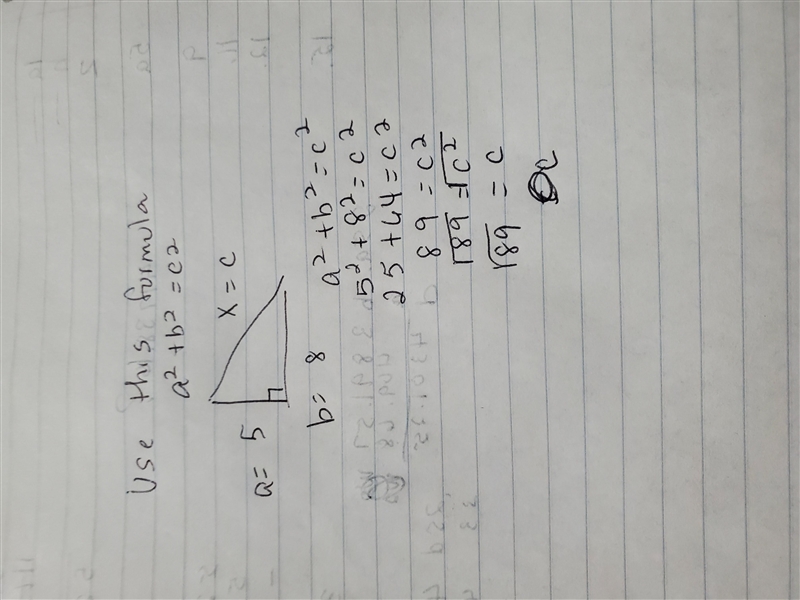 Use this formula
a² + b² = c²
x = c
a = 5
b = 8
a² + b² = c²
5² + 8² = c²
25 + 64 = c²
89 = c²
√89 = √c²
√89 = c